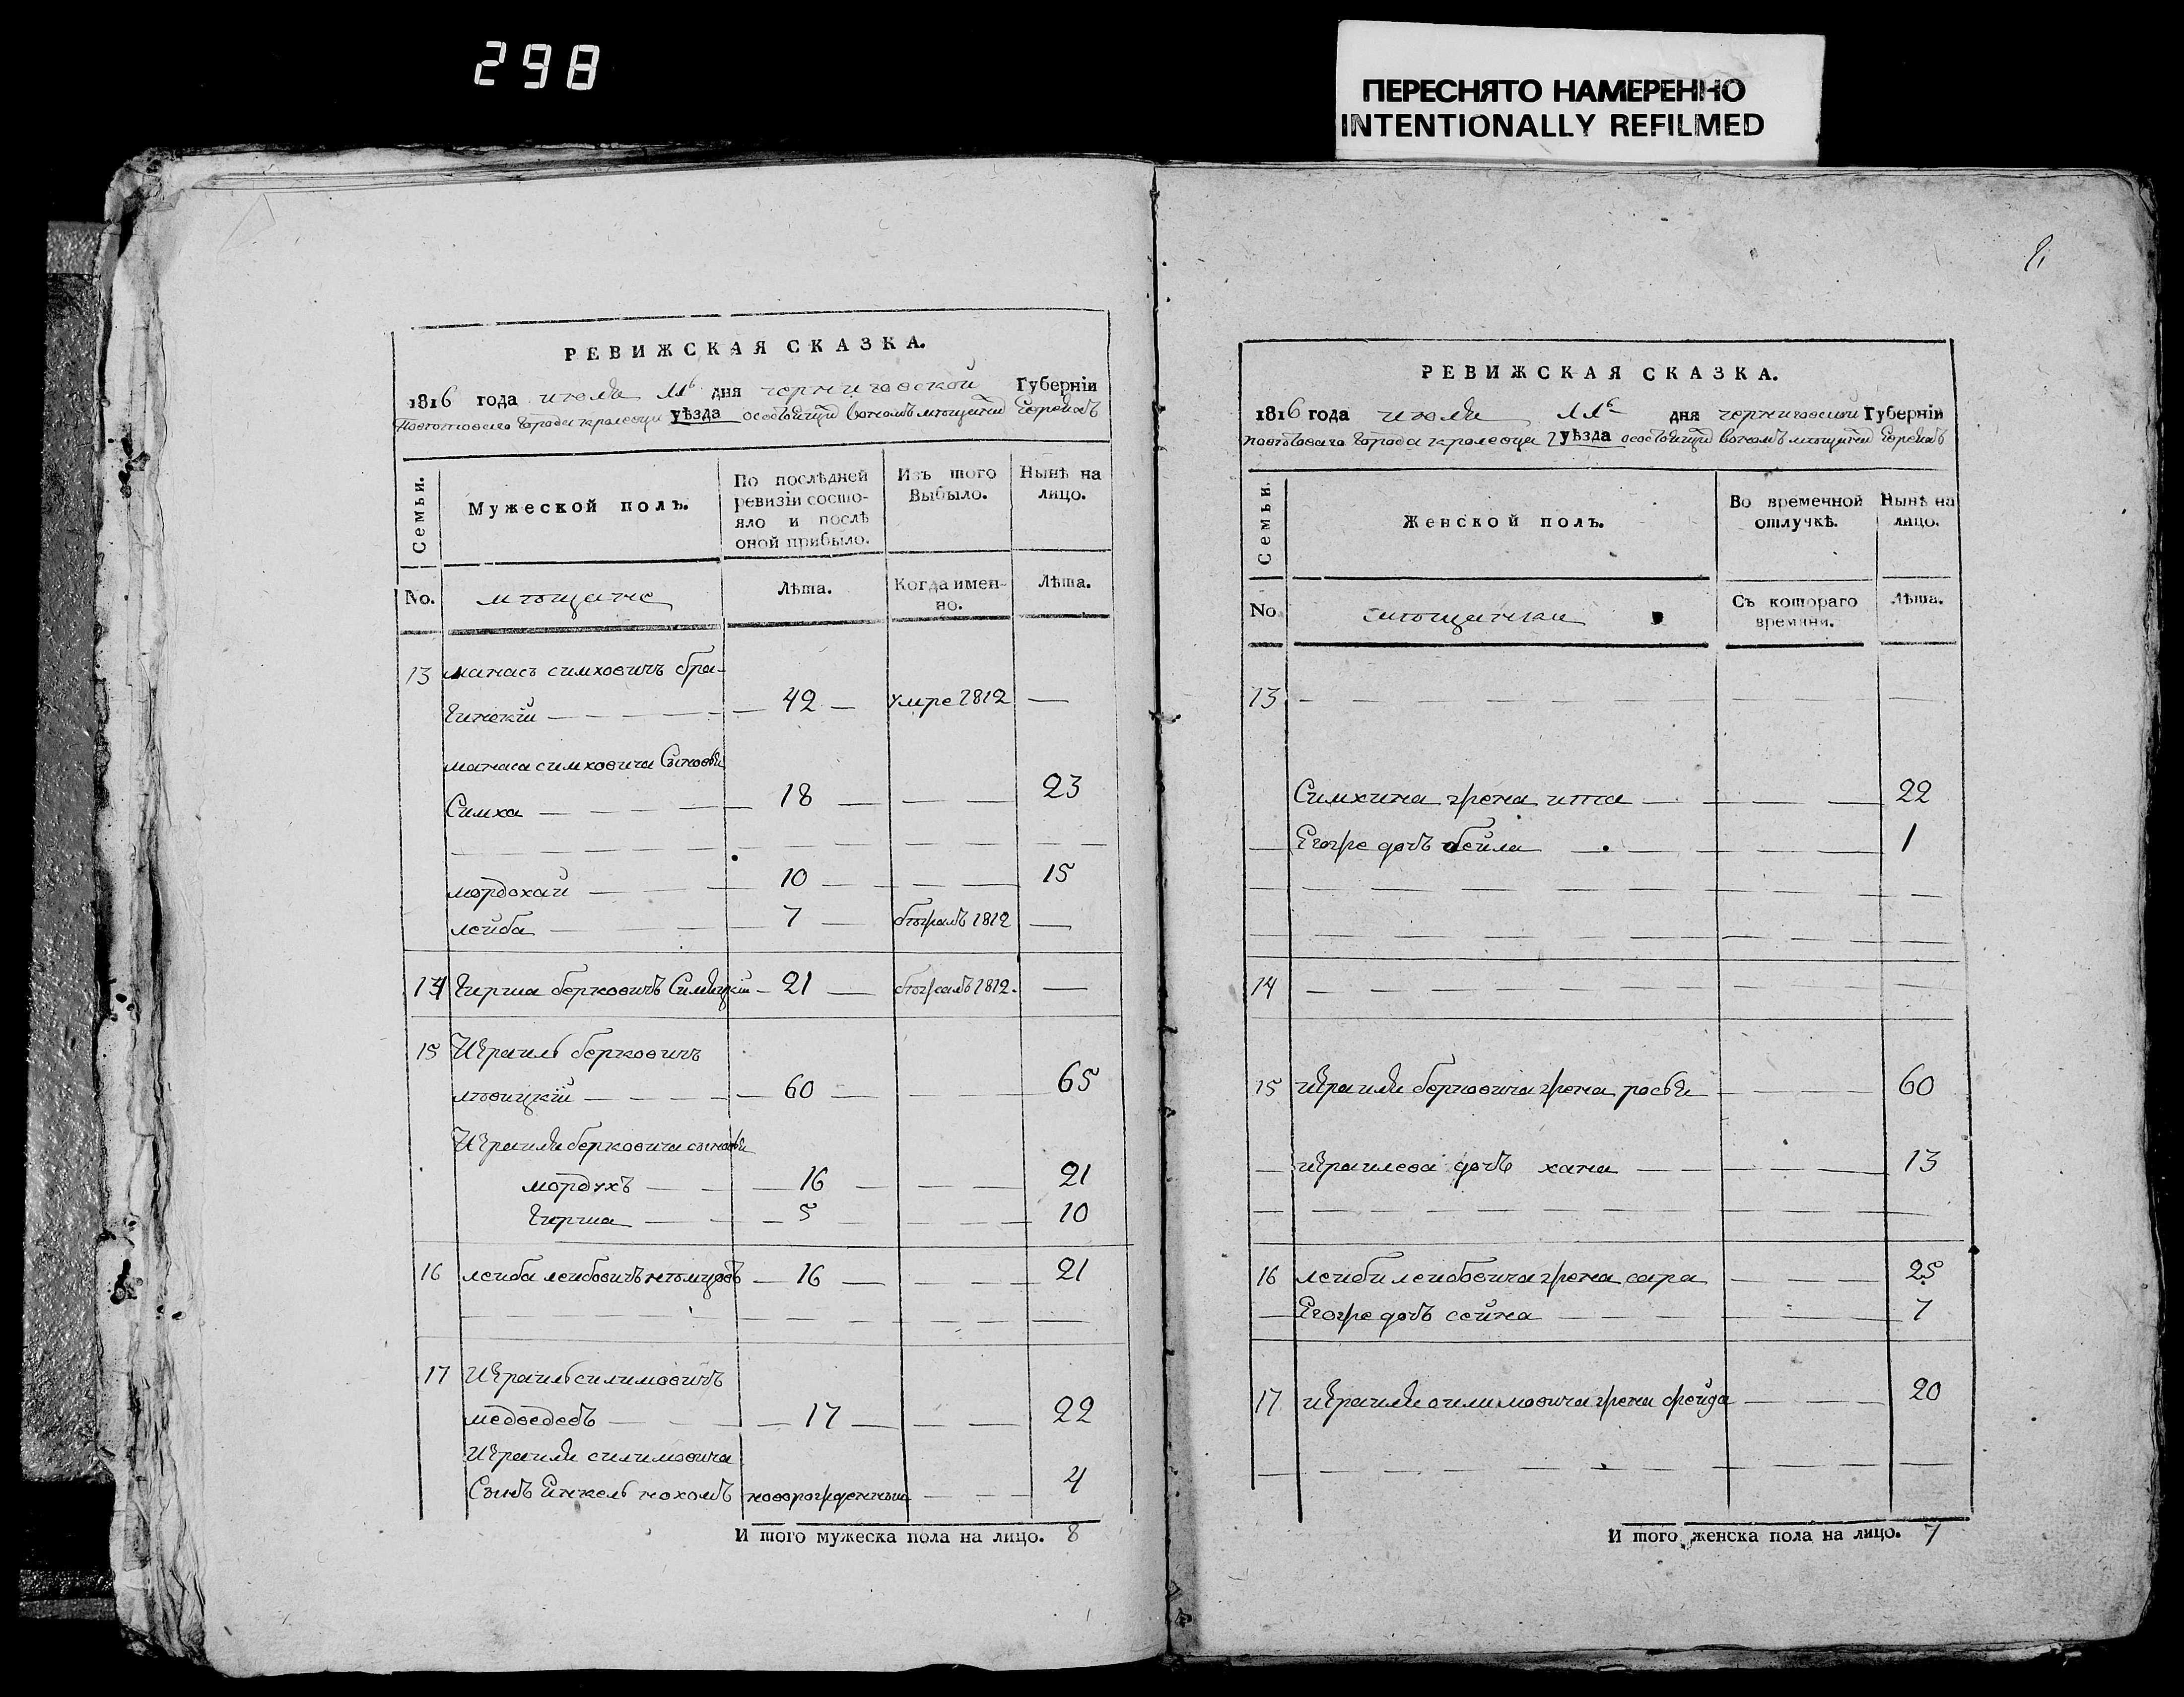 298
ПЕРЕСНЯТО НАМЕРЕННО
INTENTIONALLY REFILMED
РЕВИЖСКАЯ СКАЗКА.
1816 года июля 11го дня черниговской Губерніи
города кролевца уѣзда осостоящих вономъ мѣщанъ Евреяхъ
Семьи.
Мужеской полъ.
По послѣдней ревизіи состо-
яло и послѣ
оной прибыло.
Изъ того
Выбыло.
Нынѣ на
лицо.
No.
мѣщане
Лѣта.
Когда имен-
но.
Лѣта.
13 манась симховичъ бра-
гинскій — 42 — умре 1812 —
манаса симховича Сыновья
Симха — 18 — — 23
мордохай — 10 — — 15
лейба — 7 — бѣжалъ 1812 —
14 Гирша берковичъ — 21 — бѣжалъ 1812. —
15 Израиль берковичъ
мѣвицкій — 60 — — 65
Израиля берковича сыновья
мордухъ — 16 — — 21
Гирша — 5 — — 10
16 лейба лейбовичъ — 16 — — 21
17 Израиль силимовичъ
медведевъ — 17 — — 22
Израиля силимовича
Сынъ Янкель нохомъ новорожденный — 4
И того мужеска пола на лицо. 8
РЕВИЖСКАЯ СКАЗКА.
1816 года июля 11го дня черниговской Губерніи
города кролевца уѣзда осостоящих вономъ мѣщанъ Евреяхъ
Семьи.
Женской полъ.
Во временной
отлучкѣ.
Нынѣ на
лицо.
No.
мѣщанки
Съ котораго
времяни.
Лѣта.
13
Симхина жена ита — — 22
Егожe дочь бейла — — 1
14
15 израиля берковича жена — — 60
израилева дочь хана — — 13
16 лейби лейбовича жена сара — — 25
Егоже дочь сейна — — 7
17 израиля силимовича жена фейда — — 20
И того женска пола на лицо. 7